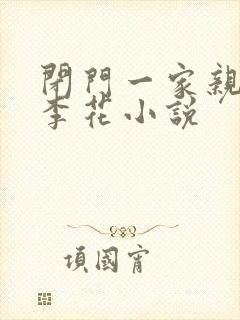 閉門一家親
李花小說
項國甯